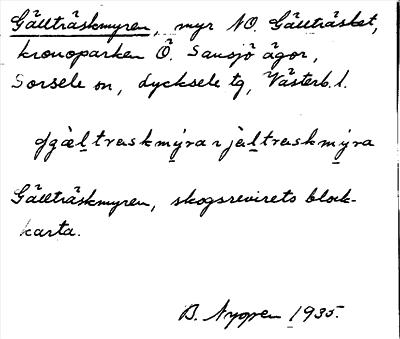 Gällträskmyren, myr NO. Gällträsket,
kronoparken Ö. Sansjö ägor,
Sorsele sn, Lycksele tg, Västerb. l.
Gällträskmyren, skogsrevirets block-
karta.
B. Nygren 1935.